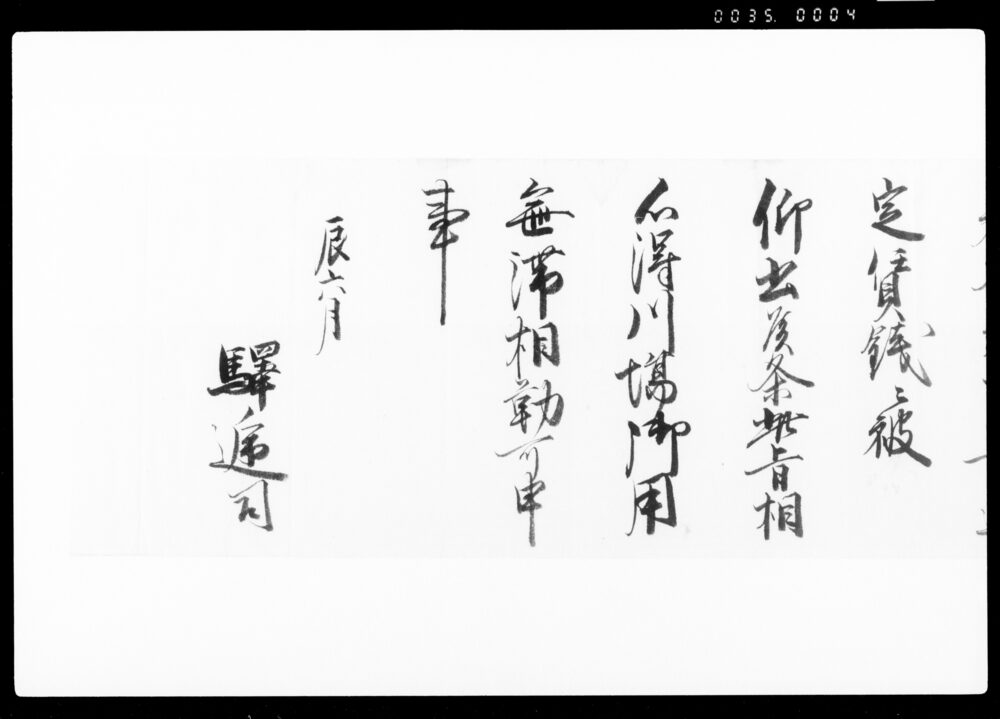 0035. 0004
定賃錢ニ被
仰出候条此旨相
心得川場御用
無滞相勤可申
事
辰六月
驛逓司